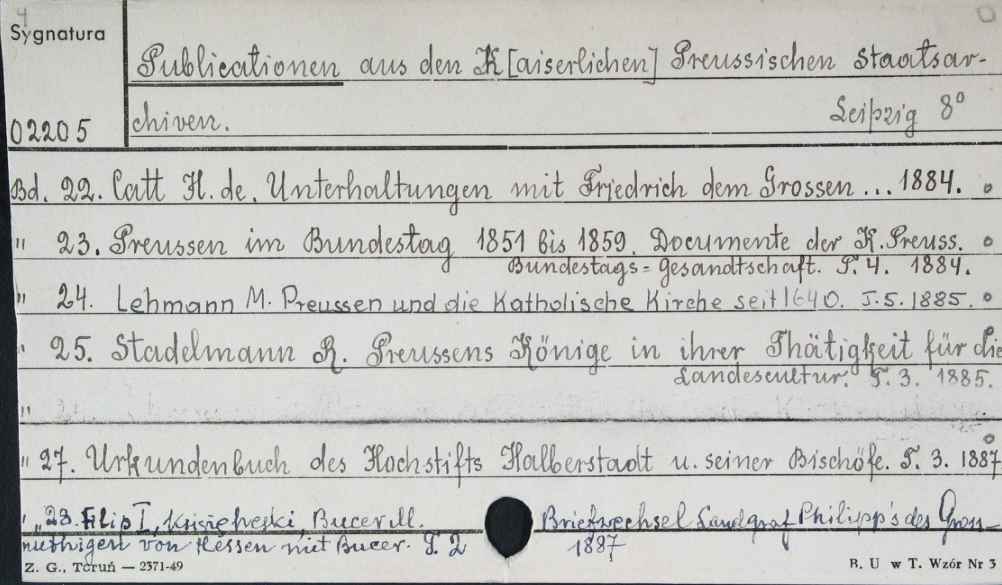 Sygnatura
Publicationen aus den K[aiserlichen] Preussischen Staatsar-
02205 chiven. Leipzig 8°
Bd. 22. Catt H. de. Unterhaltungen mit Friedrich dem Grossen... 1884.
" 23. Preussen im Bundestag 1851 bis 1859. Documente der K. Preuss.
Bundestags=Gesandtschaft. T. 4. 1884.
" 24. Lehmann M. Preussen und die Katholische Kirche seit 1640. T. 5. 1885.
" 25. Stadelmann R. Preussens Könige in ihrer Thätigkeit für die
Landescultur. T. 3. 1885.
"
" 27. Urkundenbuch des Hochstifts Halberstadt u. seiner Bischöfe. T. 3. 1887
" 28. Filip I, Książę heski, Bucer M. Briefwechsel Landgraf Philipp's des Gross-
muthigen von Hessen mit Bucer. T. 2 1887
Z. G., Toruń — 2371-49 B. U w T. Wzór Nr 3